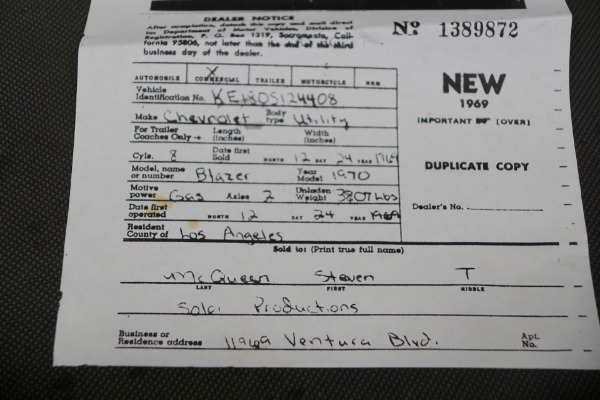 DEALER NOTICE
After completion, detach this copy and mail direct
to: Department of Motor Vehicles, Division of
Registration, P. O. Box 1319, Sacramento, Cali-
fornia 95806, not later than the end of the third
business day of the dealer.
No 1389872
X
AUTOMOBILE COMMERCIAL TRAILER MOTORCYCLE NEW
Vehicle
Identification No. KE180S124408
Make Chevrolet Body type Utility
For Trailer Coaches Only → Length (inches) Width (inches)
Cyls. 8 Date first Sold MONTH 12 DAY 24 YEAR 1969
Model, name or number Blazer Year Model 1970
Motive power Gas Axles 2 Unladen Weight 3807 Lbs
Date first operated MONTH 12 DAY 24 YEAR 1969
Resident County of Los Angeles
NEW
1969
IMPORTANT (OVER)
DUPLICATE COPY
Dealer's No.
Sold to: (Print true full name)
McQueen Steven T
LAST FIRST MIDDLE
Solar Productions
Business or
Residence address 11969 Ventura Blvd. Apt. No.